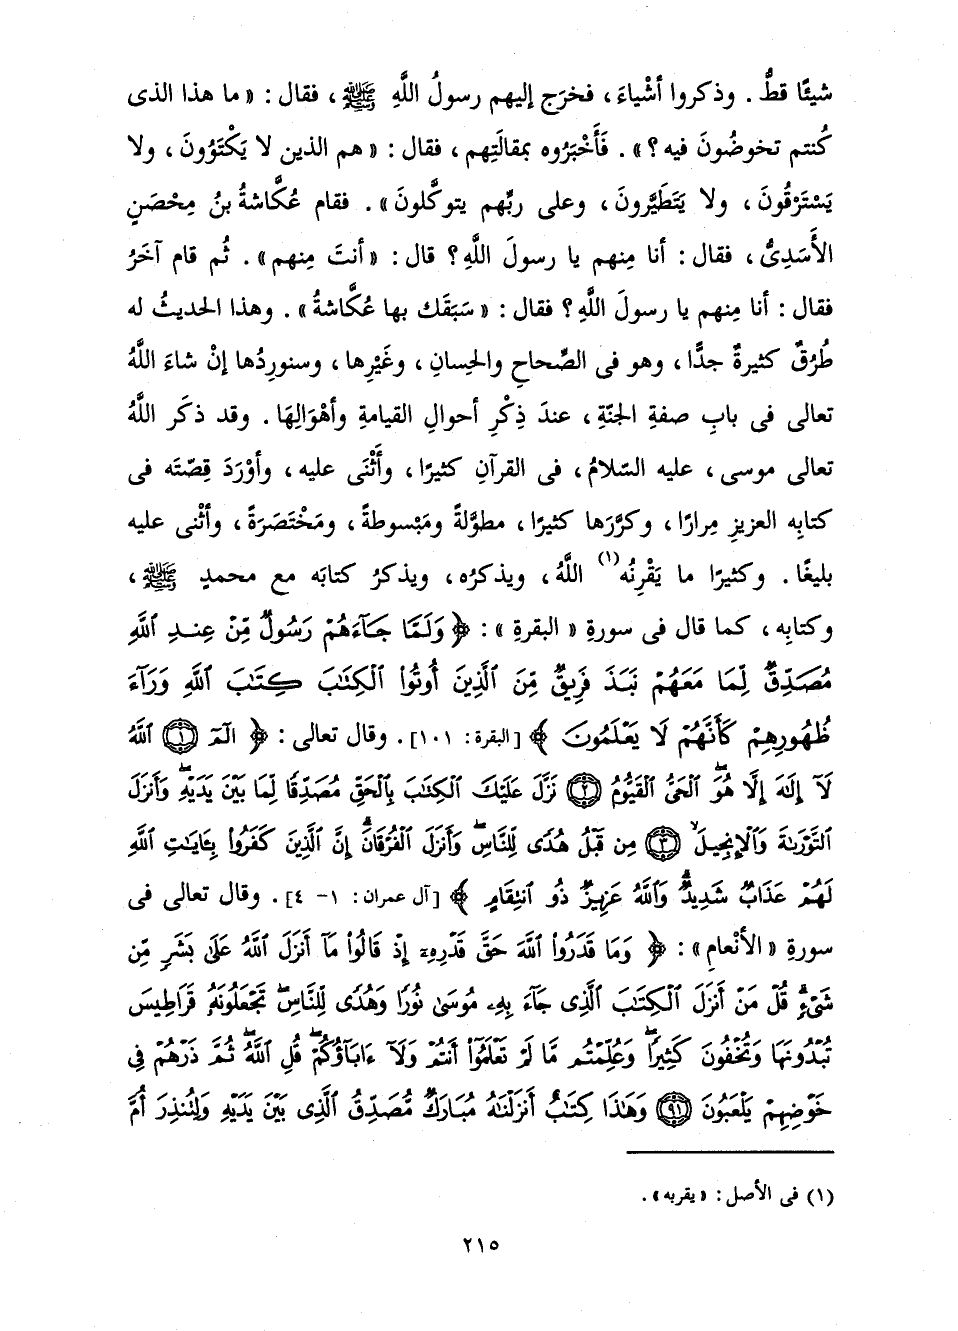 شيئًا قطُّ . وذكروا أشْياءَ ، فخرَج إليهم رسولُ اللَّهِ ﷺ ، فقال : « ما هذا الذى
كُنتم تخوضُونَ فيه ؟ » . فَأَخْبَرُوه بمقالَتِهم ، فقال : « هم الذين لا يَكْتَوُونَ ، ولا
يَسْتَرْقُونَ ، ولا يَتَطَيَّرُونَ ، وعلى ربِّهم يتوكَّلونَ » . فقام عُكَّاشةُ بنُ مِحْصَنٍ
الأَسَدِىُّ ، فقال : أنا مِنهم يا رسولَ اللَّهِ ؟ قال : « أنتَ مِنهم » . ثُم قام آخَرُ
فقال : أنا مِنهم يا رسولَ اللَّهِ ؟ فقال : « سَبَقَك بها عُكَّاشةُ » . وهذا الحديثُ له
طُرُقٌ كثيرةٌ جدًّا ، وهو فى الصِّحاحِ والحِسانِ ، وغَيْرِها ، وسنورِدُها إنْ شاءَ اللَّهُ
تعالى فى بابِ صفةِ الجنّةِ ، عندَ ذِكْرِ أحوالِ القيامةِ وأهْوَالِهَا . وقد ذكَر اللَّهُ
تعالى موسى ، عليه السّلامُ ، فى القرآنِ كثيرًا ، وأَثْنَى عليه ، وأوْرَدَ قِصّتَه فى
كتابِه العزيزِ مِرارًا ، وكرَّرَها كثيرًا ، مطوَّلةً ومَبْسوطةً ، ومُخْتَصَرَةً ، وأثْنى عليه
بليغًا . وكثيرًا ما يَقْرِنُه(١) اللَّهُ ، ويذكرُه ، ويذكرُ كتابَه مع محمدٍ ﷺ ،
وكتابِه ، كما قال فى سورةِ « البقرةِ » : ﴿ وَلَمَّا جَآءَهُمْ رَسُولٌ مِّنْ عِندِ ٱللَّهِ
مُصَدِّقٌ لِّمَا مَعَهُمْ نَبَذَ فَرِيقٌ مِّنَ ٱلَّذِينَ أُوتُوا۟ ٱلْكِتَٰبَ كِتَٰبَ ٱللَّهِ وَرَآءَ
ظُهُورِهِمْ كَأَنَّهُمْ لَا يَعْلَمُونَ ﴾ [البقرة: ١٠١] . وقال تعالى : ﴿ الٓمٓ ۝١ ٱللَّهُ
لَآ إِلَٰهَ إِلَّا هُوَ ۖ ٱلْحَىُّ ٱلْقَيُّومُ ۝٢ نَزَّلَ عَلَيْكَ ٱلْكِتَٰبَ بِٱلْحَقِّ مُصَدِّقًا لِّمَا بَيْنَ يَدَيْهِ ۖ وَأَنزَلَ
ٱلتَّوْرَىٰةَ وَٱلْإِنجِيلَ ۙ ۝٣ مِن قَبْلُ هُدًى لِّلنَّاسِ ۖ وَأَنزَلَ ٱلْفُرْقَانَ ۗ إِنَّ ٱلَّذِينَ كَفَرُوا۟ بِـَٔايَٰتِ ٱللَّهِ
لَهُمْ عَذَابٌ شَدِيدٌ ۗ وَٱللَّهُ عَزِيزٌ ذُو ٱنتِقَامٍ ﴾ [آل عمران: ١- ٤] . وقال تعالى فى
سورةِ « الأنْعامِ » : ﴿ وَمَا قَدَرُوا۟ ٱللَّهَ حَقَّ قَدْرِهِۦٓ إِذْ قَالُوا۟ مَآ أَنزَلَ ٱللَّهُ عَلَىٰ بَشَرٍ مِّن
شَىْءٍ ۗ قُلْ مَنْ أَنزَلَ ٱلْكِتَٰبَ ٱلَّذِى جَآءَ بِهِۦ مُوسَىٰ نُورًا وَهُدًى لِّلنَّاسِ ۖ تَجْعَلُونَهُۥ قَرَاطِيسَ
تُبْدُونَهَا وَتُخْفُونَ كَثِيرًا ۖ وَعُلِّمْتُم مَّا لَمْ تَعْلَمُوٓا۟ أَنتُمْ وَلَآ ءَابَآؤُكُمْ ۖ قُلِ ٱللَّهُ ۖ ثُمَّ ذَرْهُمْ فِى
خَوْضِهِمْ يَلْعَبُونَ ۝٩١ وَهَٰذَا كِتَٰبٌ أَنزَلْنَٰهُ مُبَارَكٌ مُّصَدِّقُ ٱلَّذِى بَيْنَ يَدَيْهِ وَلِتُنذِرَ أُمَّ
(١) فى الأصل : « يقربه » .
٢١٥